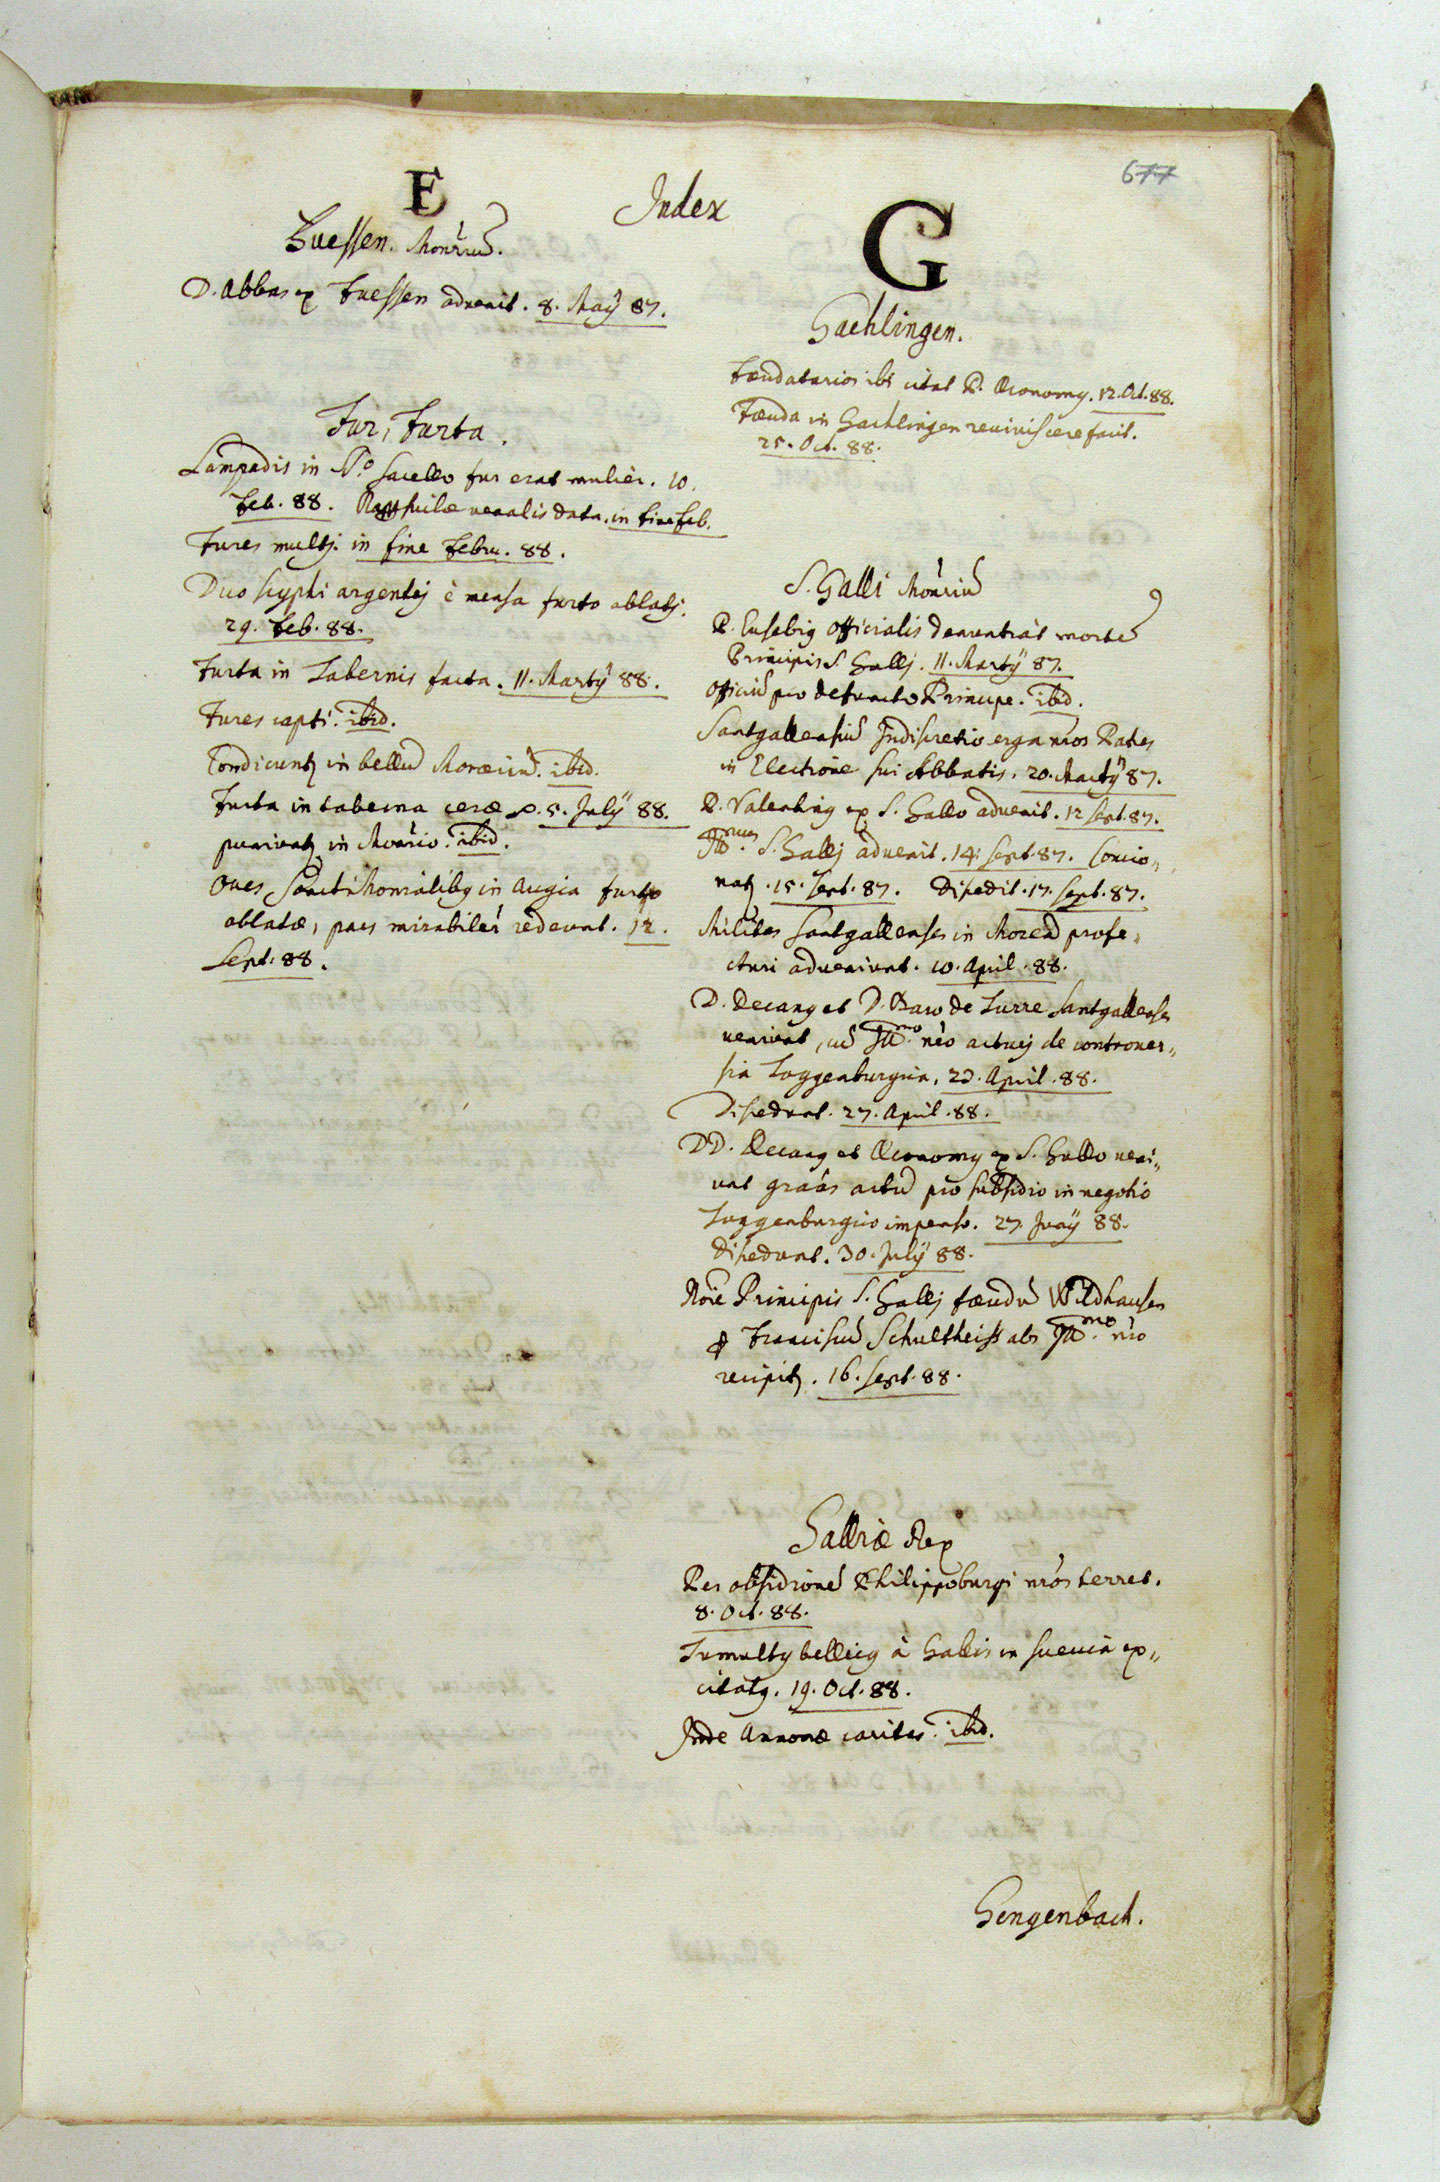 Index
677
F
Fuessen. Monriũ.
D. Abbas ex Fuessen advenit. 8. Maÿ 87.
Fur, Furta.
Lampadis in N.o sacello fur erat mulier. 10.
Feb. 88. venalis data. in fine feb.
Fures multj. in fine Febru. 88.
Duo scyphi argentej è mensa furto ablatj.
29. Feb. 88.
Furta in Tabernis facta. 11. Martÿ 88.
Fures capti. ibid.
Condicunt in bellũ ibid.
Furta in taberna ceræ 5. Julÿ 88.
puniunt in Monrio. ibid.
Oves Sancti in Augia furto
oblatæ, pars mirabiler redeunt. 12.
Sept. 88.
G
Gachlingen.
Fæudatarios ibi citat P. Œconomꝰ. 12. Oct. 88.
Fæuda in Gachlingen reviviscere facit.
25. Oct. 88.
S. Galli Monriũ
P. Eusebiꝰ Officialis denuntiat mortẽ
Principis S. Gallj. 11. Martÿ 87.
Officiũ pro defuncto Principe. ibid.
Santgallensiũ Indiscretio erga nros Patres
in Electione sui Abbatis. 20. Martÿ 87.
P. Valentinꝰ ex S. Gallo advenit. 12 sept. 87.
S. Gallj advenit. 14. sept. 87. Concio„
natꝰ. 15. sept. 87. Discedit. 17. sept. 87.
Milites Santgallenses in Moreã profe„
cturi adveniunt. 10. April. 88.
D. Decanꝰ et D. Baro de Turre Santgallenses
veniunt, cũ nro acturj de controver„
sia Toggenburgica. 23. April. 88.
Discedunt. 27. April. 88.
DD. Decanꝰ et Œconomꝰ ex S. Gallo veni„
unt graas actũ pro subsidio in negotio
Toggenburgico impenso. 27. Junÿ 88.
Discedunt. 30. Julÿ 88.
Noie Principis S. Gallj fæudũ Wildhausen
Franciscũ Schultheiss ab nro
recipit. 16. sept. 88.
Galliæ Rex
Per obsidionẽ Philippoburgi nros terret.
8. Oct. 88.
Tumultꝰ bellicꝰ à Gallis in Suevia ex„
citatꝰ. 19. Oct. 88.
Inde Annonæ caritas. ibid.
Gengenbach.